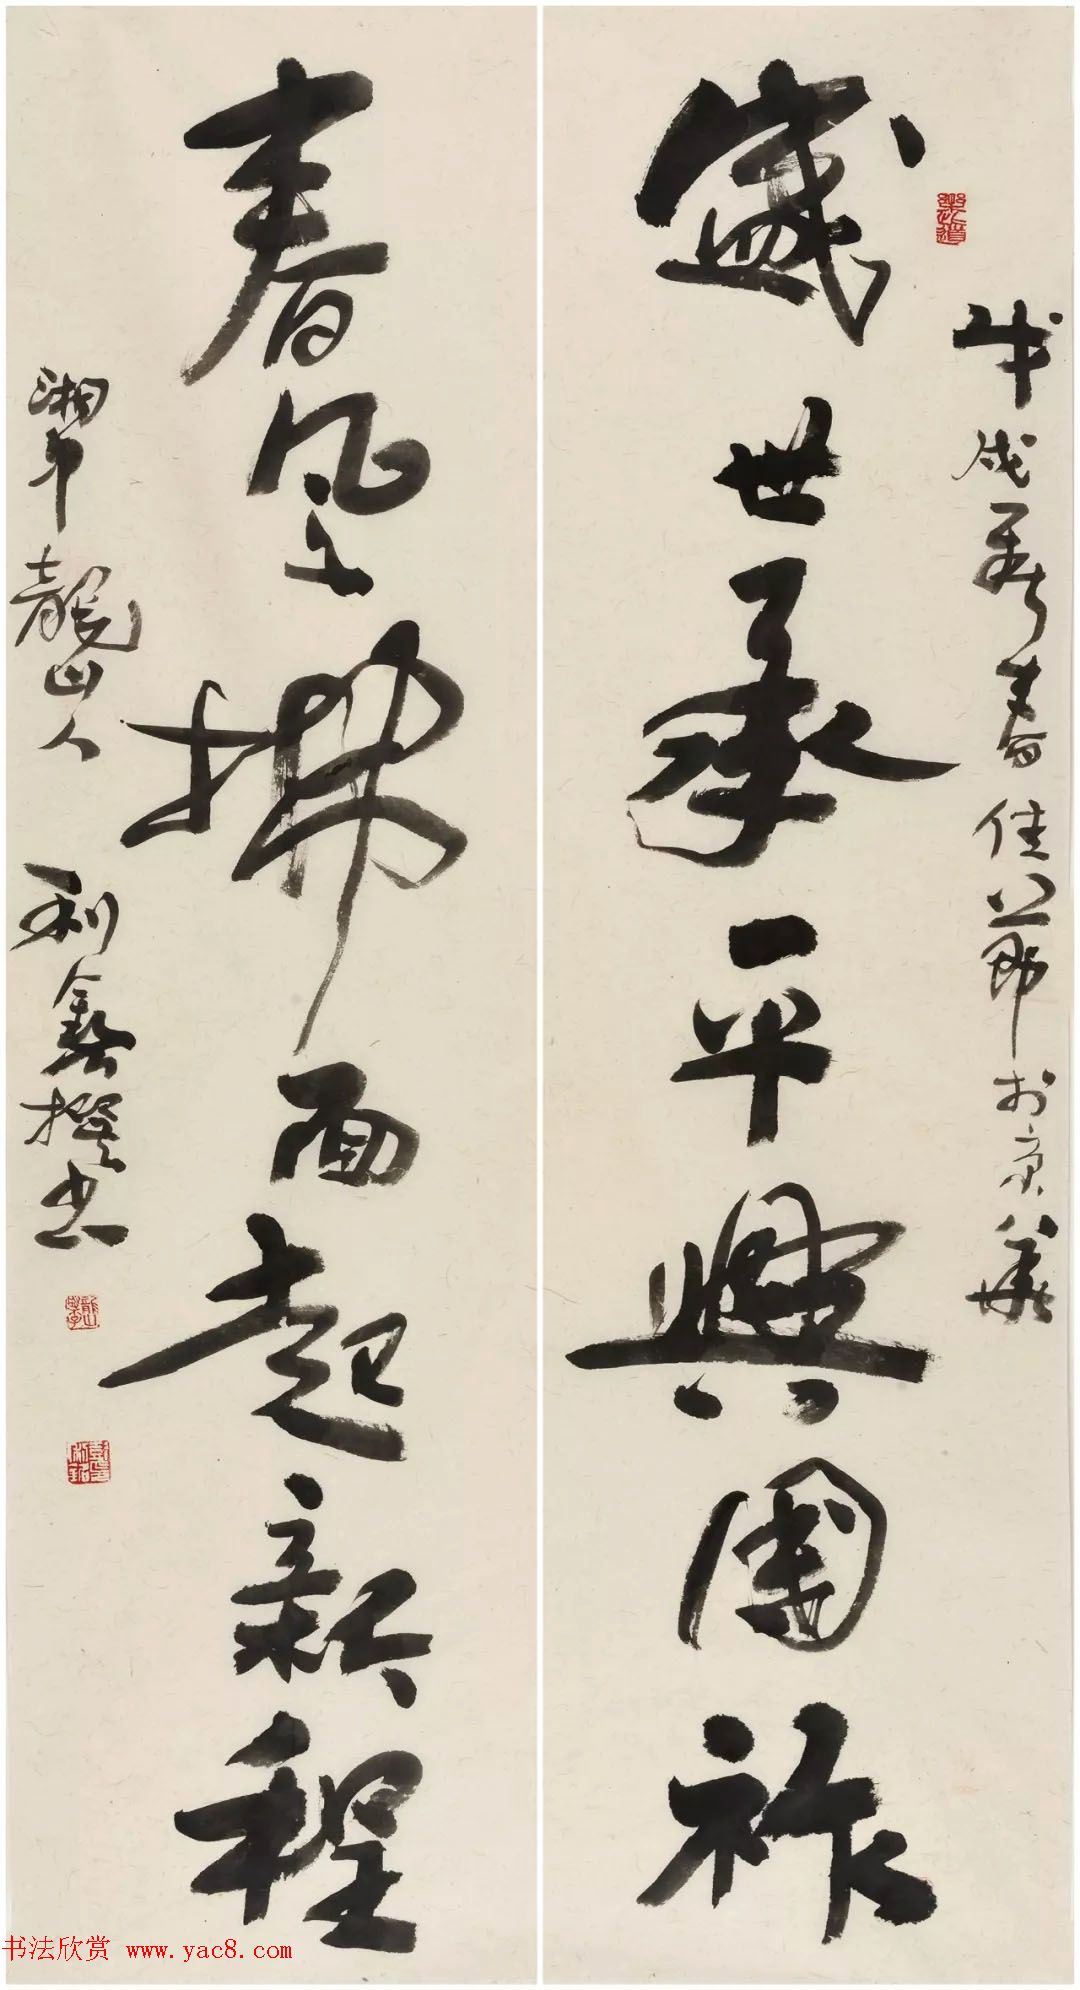 盛世承平興國祚
戊戌年春佳節於京華
春風拂面起新程
湘中龍山人 利鑫撰書
书法欣赏 www.yac8.com